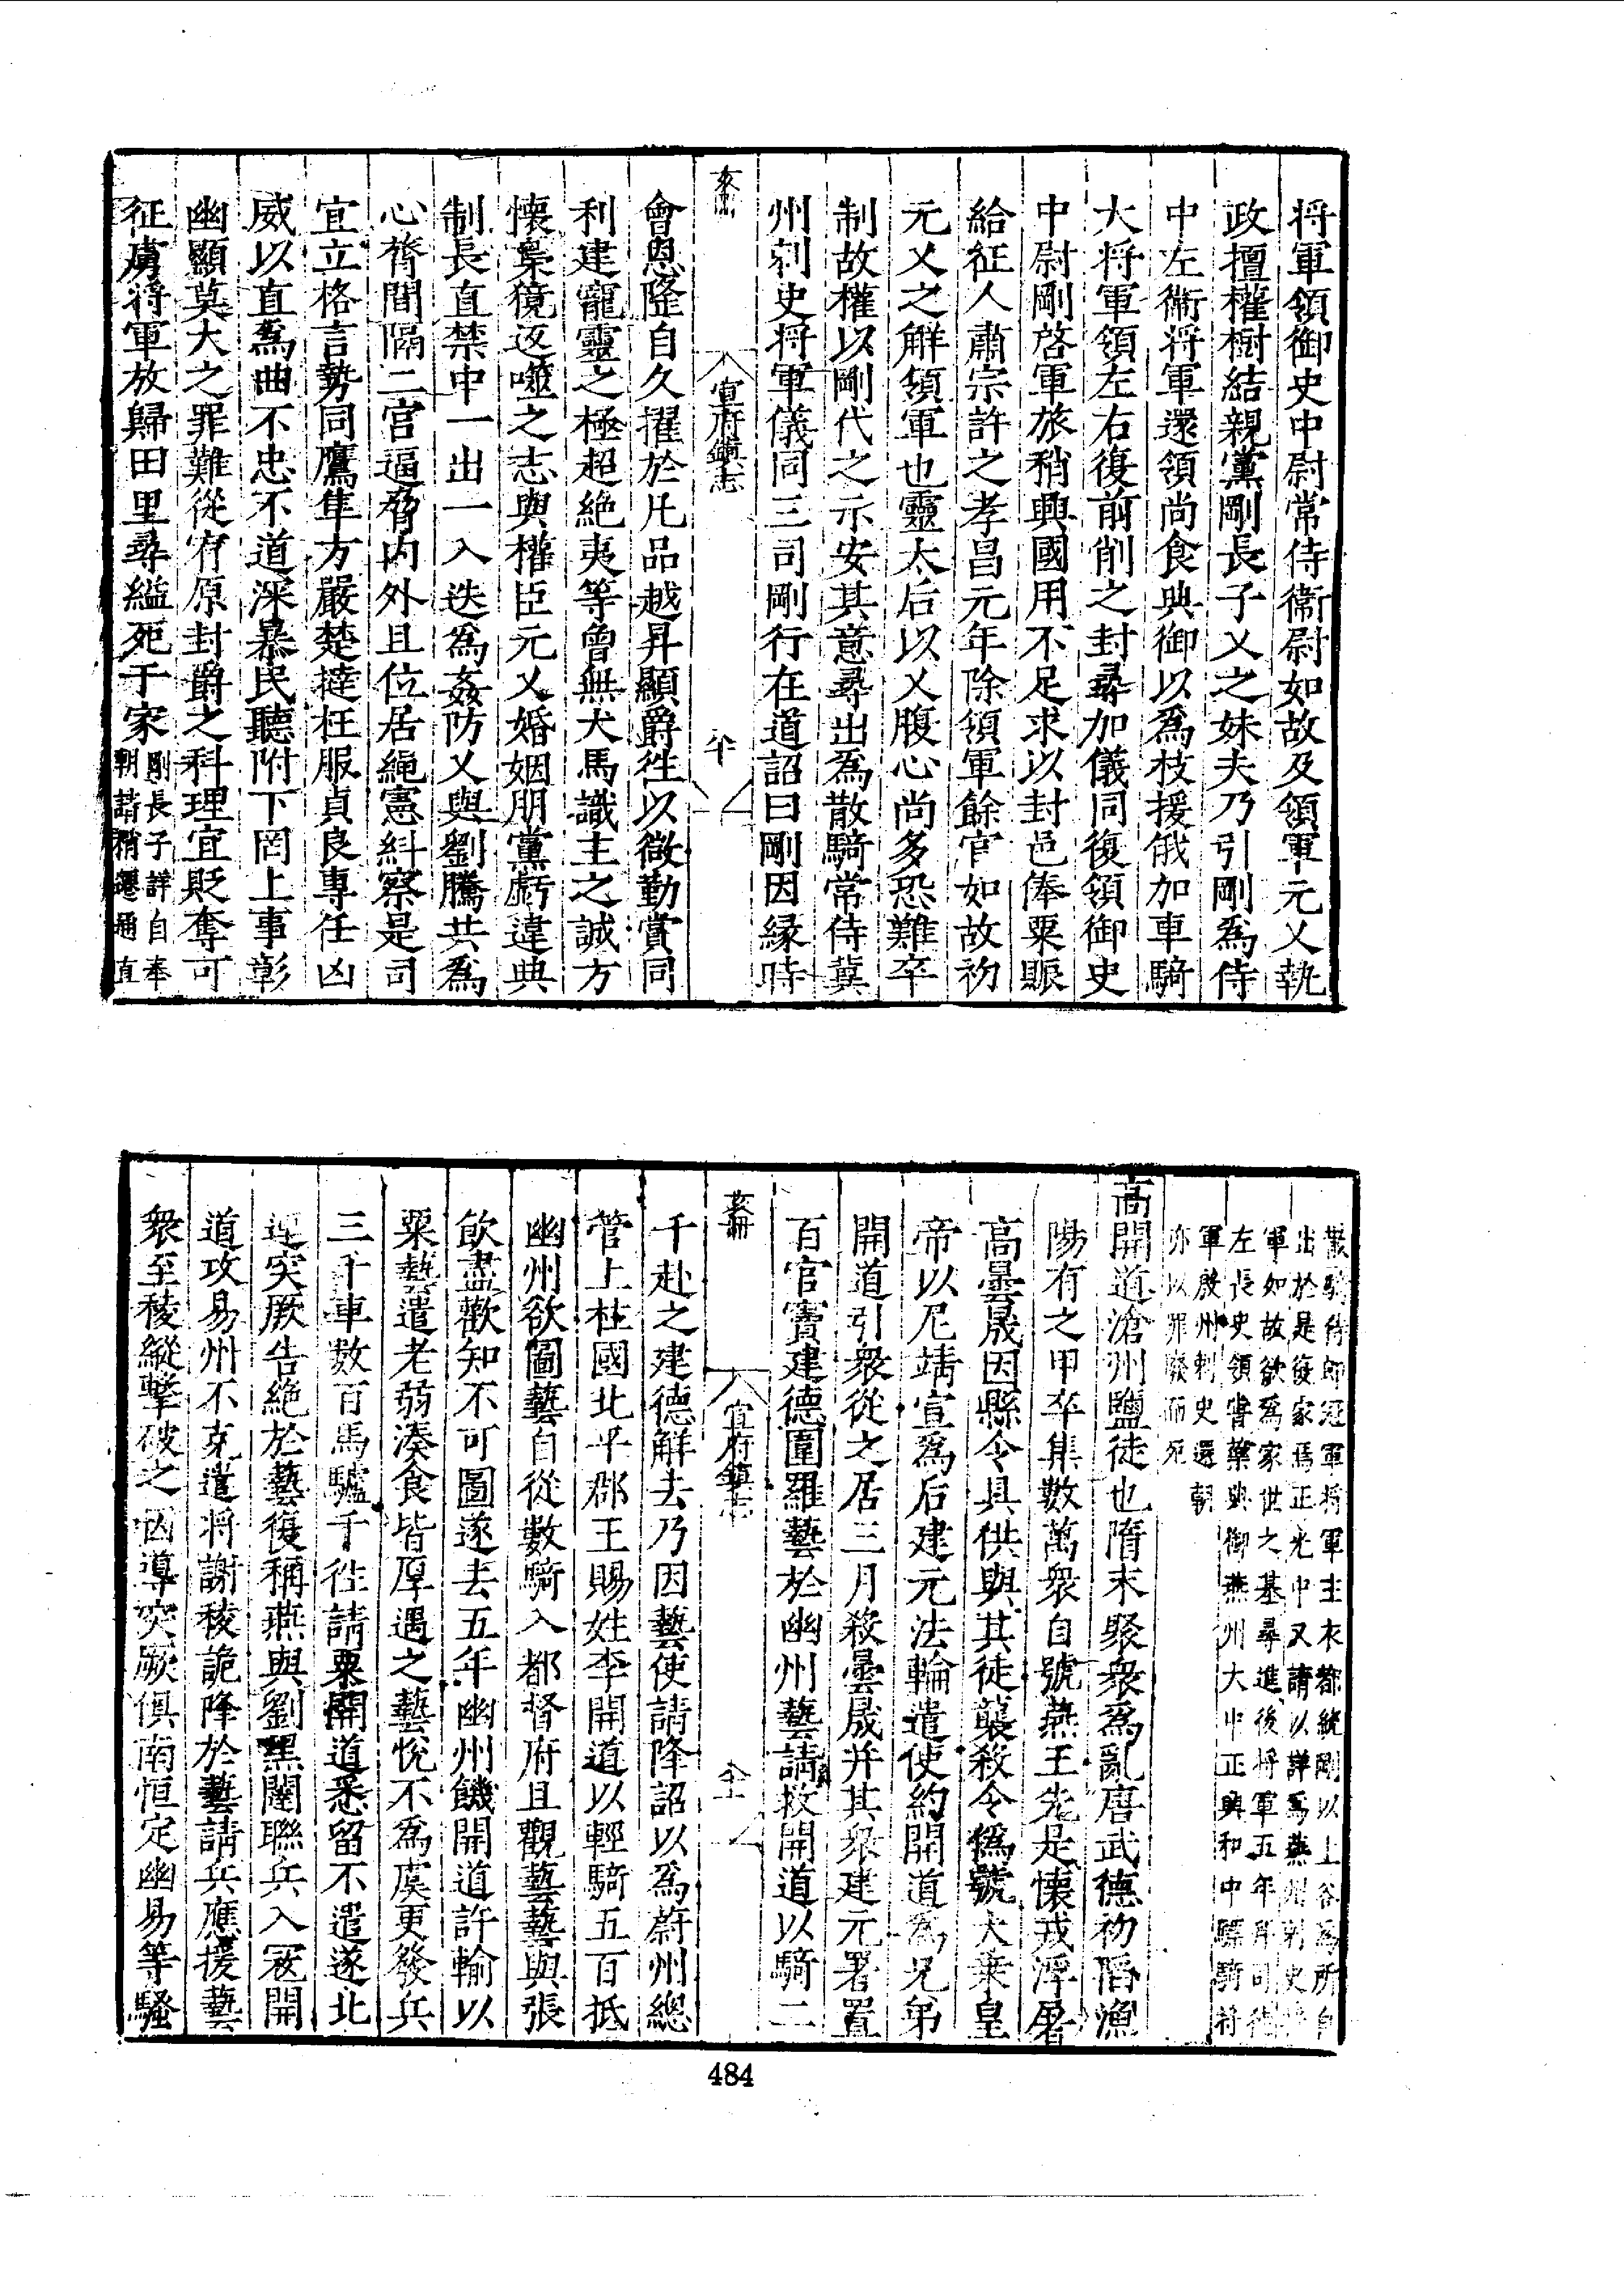 将軍領御史中尉常侍衞尉如故及領軍元乂執
政擅權樹結親黨剛長子乂之妹夫乃引剛爲侍
中左衞将軍還領尚食典御以爲枝援俄加車騎
大将軍領左右復前削之封尋加儀同復領御史
中尉剛啓軍旅稍興國用不足求以封邑俸粟賑
給征人肅宗許之孝昌元年除領軍餘官如故初
元乂之解領軍也靈太后以乂腹心尚多恐難卒
制故權以剛代之示安其意尋出爲散騎常侍冀
州刺史将軍儀同三司剛行在道詔曰剛因縁時
宣府鎮志
會恩隆自久擢於凡品越昇顯爵徃以微勤賞同
利建寵靈之極超絶夷等曾無犬馬識主之誠方
懷梟獍返噬之志與權臣元乂婚姻朋黨虧違典
制長直禁中一出一入迭爲姦防乂與劉騰共爲
心膂間隔二宫逼脅内外且位居繩憲糾察是司
宜立格言勢同鷹隼方嚴楚撻枉服貞良專任凶
威以直爲曲不忠不道深暴民聽附下罔上事彰
幽顯莫大之罪難從宥原封爵之科理宜貶奪可
征虜将軍放歸田里尋縊死于家
剛長子詳自奉
朝請稍遷通直
散騎侍郎冠軍将軍主衣都統剛以上谷爲所自
出於是復家焉正光中又請以詳爲燕州刺史
軍如故欲爲家世之基尋進後将軍五年拜司徒
左長史領嘗藥典御燕州大中正興和中驃騎将
軍殷州刺史還朝
亦以罪廢而死
高開道滄州鹽徒也隋末聚衆爲亂唐武德初䧟漁
陽有之甲卒集數萬衆自號燕王先是懷戎浮屠
高曇晟因縣令具供與其徒襲殺令僞號大乗皇
帝以尼靖宣爲后建元法輪遣使約開道爲兄弟
開道引衆從之居三月殺曇晟并其衆建元署置
百官竇建德圍羅藝於幽州藝請救開道以騎二
宣府鎮志
千赴之建德解去乃因藝使請降詔以爲蔚州總
管上柱國北平郡王賜姓李開道以輕騎五百抵
幽州欲圖藝自從數騎入都督府且觀藝藝與張
飲盡歡知不可圖遂去五年幽州饑開道許輸以
粟藝遣老弱湊食皆厚遇之藝悅不爲虞更發兵
三千車数百馬驢千徃請粟開道悉留不遣遂北
連突厥告絶於藝復稱燕與劉黑闥聯兵入寇開
道攻易州不克遣将謝稜詭降於藝請兵應援藝
衆至稜縱擊破之因導突厥俱南恒定幽易等騷
484